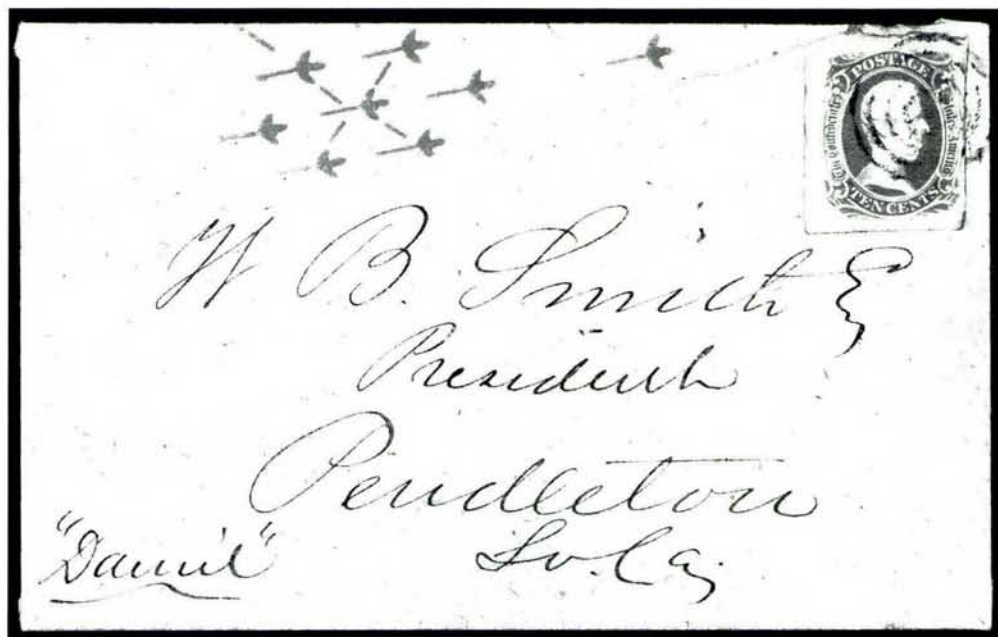 POSTAGE
The Confederate States of America
TEN CENTS
W B. Smith Es
President
Pendleton
So. Ca.
"Daniel"